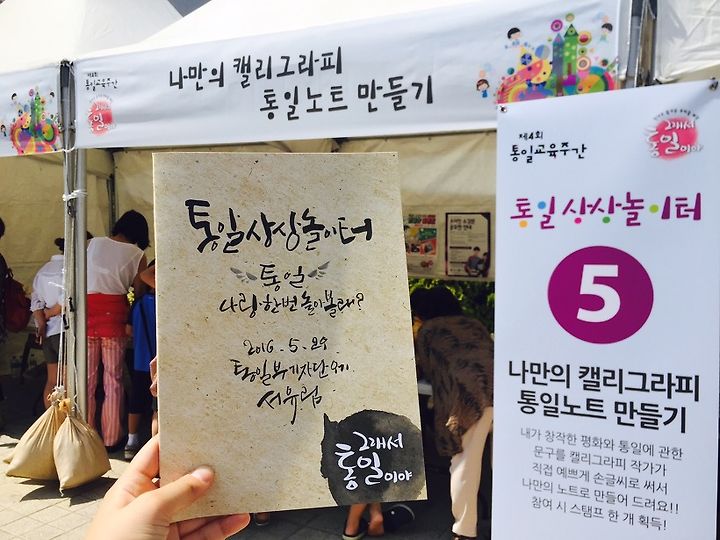 제4회
통일교육주간
그래서
통일이야
나만의 캘리그라피
통일노트 만들기
통일상상놀이터
통일
나랑 한번 놀아볼래?
2016. 5. 29
통일부기자단 9기
서유림
그래서
통일이야
제4회
통일교육주간
그래서
통일이야
통일 상상놀이터
5
나만의 캘리그라피
통일노트 만들기
내가 창작한 평화와 통일에 관한
문구를 캘리그라피 작가가
직접 예쁘게 손글씨로 써서
나만의 노트로 만들어 드려요!!
참여 시 스탬프 한 개 획득!